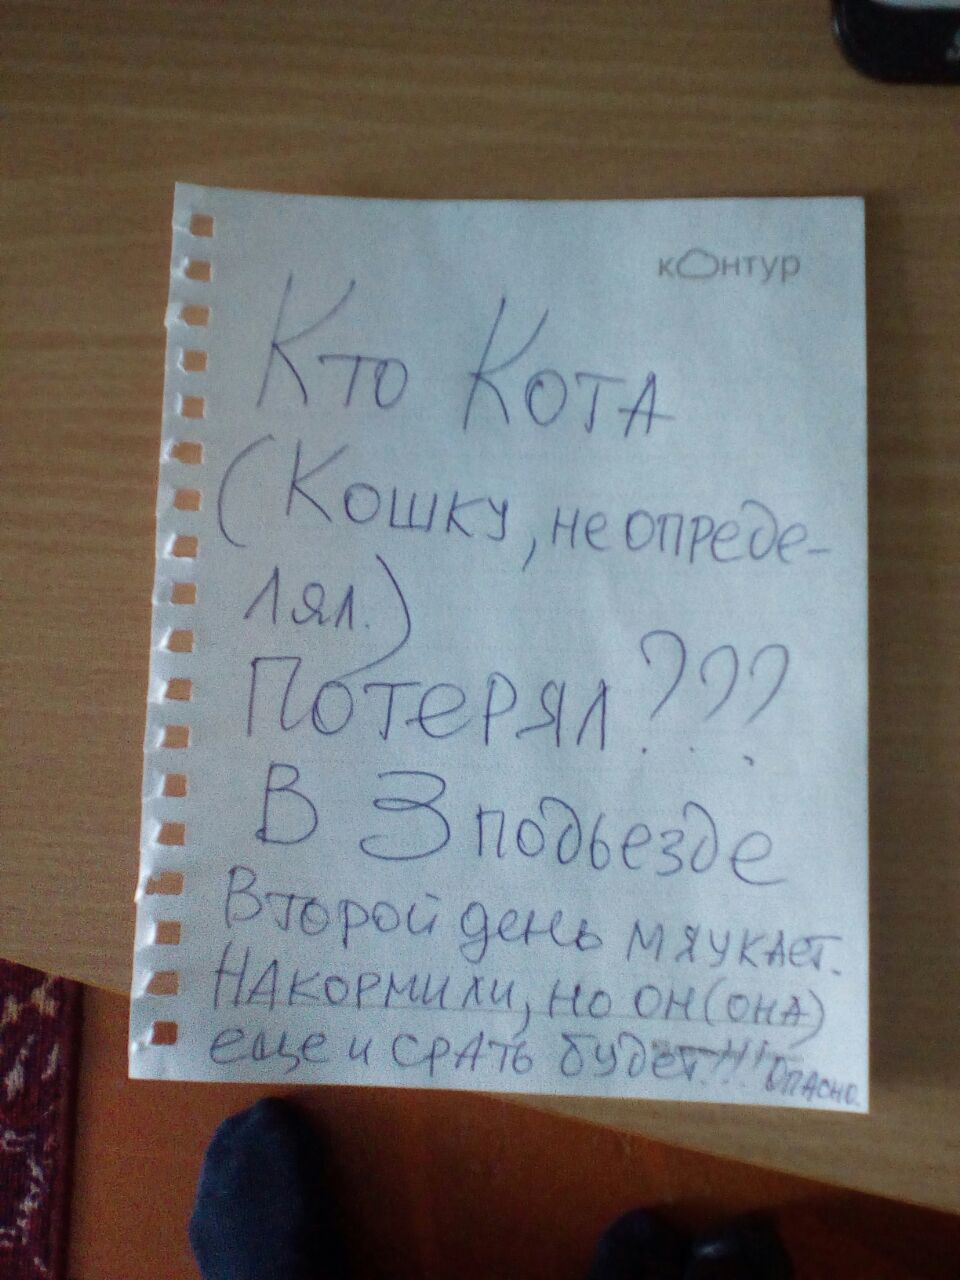 контур
Кто Кота
(Кошку, не опреде-
лял.)
Потерял???
В 3 подьезде
Второй день мяукает.
Накормили, но он (она)
еще и срать будет!!! Опасно.